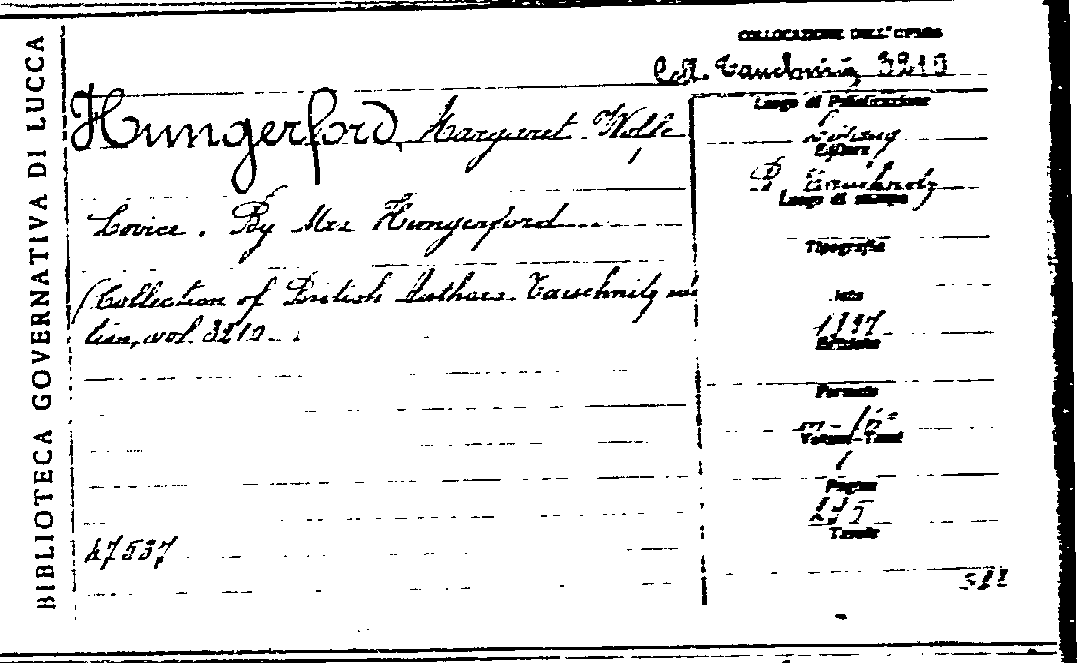 BIBLIOTECA GOVERNATIVA DI LUCCA
COLLOCAZIONE DELL'OPERA
Coll. Tauchnitz 3210
Hungerford, Margaret Wolfe
Lovice. By Mrs Hungerford
(Collection of British Authors. Tauchnitz edi
tion, vol. 3210
47537
Luogo di Pubblicazione
Editore
B Tauchnitz
Luogo di stampa
Tipografia
Data
Edizione
Formato
in-16°
Volumi-Tomi
1
Pagine
Tavole